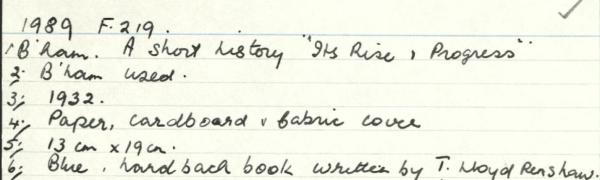 1989 F.219.
1. B'ham. A short history "Its Rise & Progress".
2. B'ham used.
3. 1932.
4. Paper, cardboard & fabric cover
5. 13 cm x 19 cm.
6. Blue, hardback book written by T. Lloyd Renshaw.